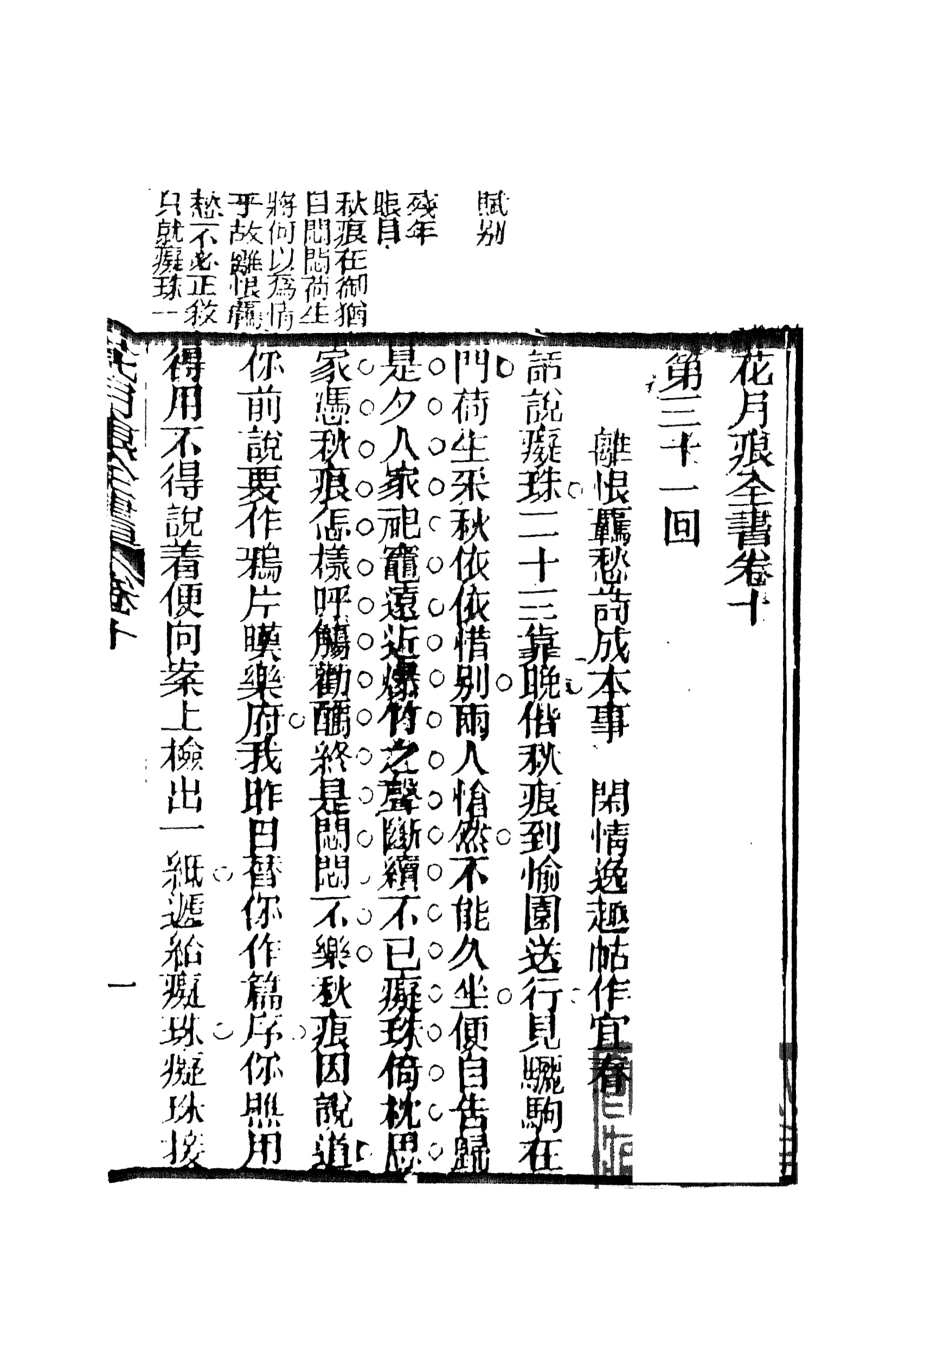 花月痕全書卷十
第三十一回
離恨羈愁詩成本事　閑情逸趣帖作宜春
話說癡珠二十三靠晚偕秋痕到愉園送行見驪駒在
門荷生采秋依依惜别兩人愴然不能久坐便自告歸
是夕人家祀竈遠近爆竹之聲斷續不已癡珠倚枕思
家憑秋痕怎樣呼觴勸酬終是悶悶不樂秋痕因說道
你前說要作鴉片暯樂府我昨日替你作篇序你照用
得用不得說着便向案上檢出一紙遞給癡珠癡珠接
賦别
殘年
賬目
秋痕在御猶
日悶悶荷生
將何以為情
乎故離恨羈
愁不必正敘
只就癡珠一
花月痕全書
卷十
一